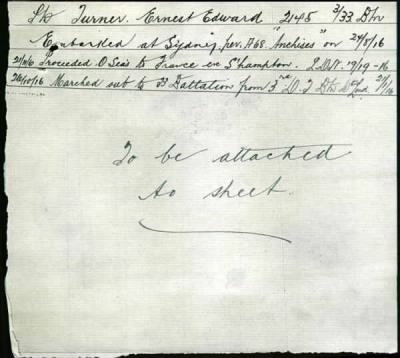 Turner. Ernest Edward 2145 3/33 Btn
Embarked at Sydney, per. A68. "Anchises" on 24/8/16
Proceeded O'Seas to France ex S'hampton.
20/10/16 Marched out to 33 Battalion from 3rd D. J Btn
To be attached
to sheet.